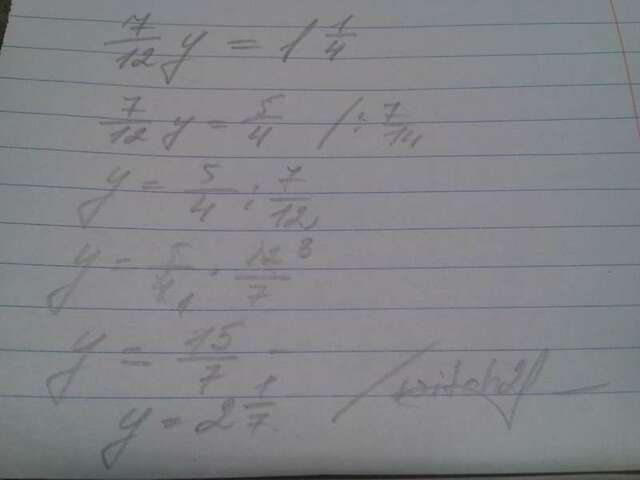 7/12 y = 1 1/4
7/12 y = 5/4 /: 7/14
y = 5/4 : 7/12
y = 5/4 1 · 12 3/7
y = 15/7
y = 2 1/7